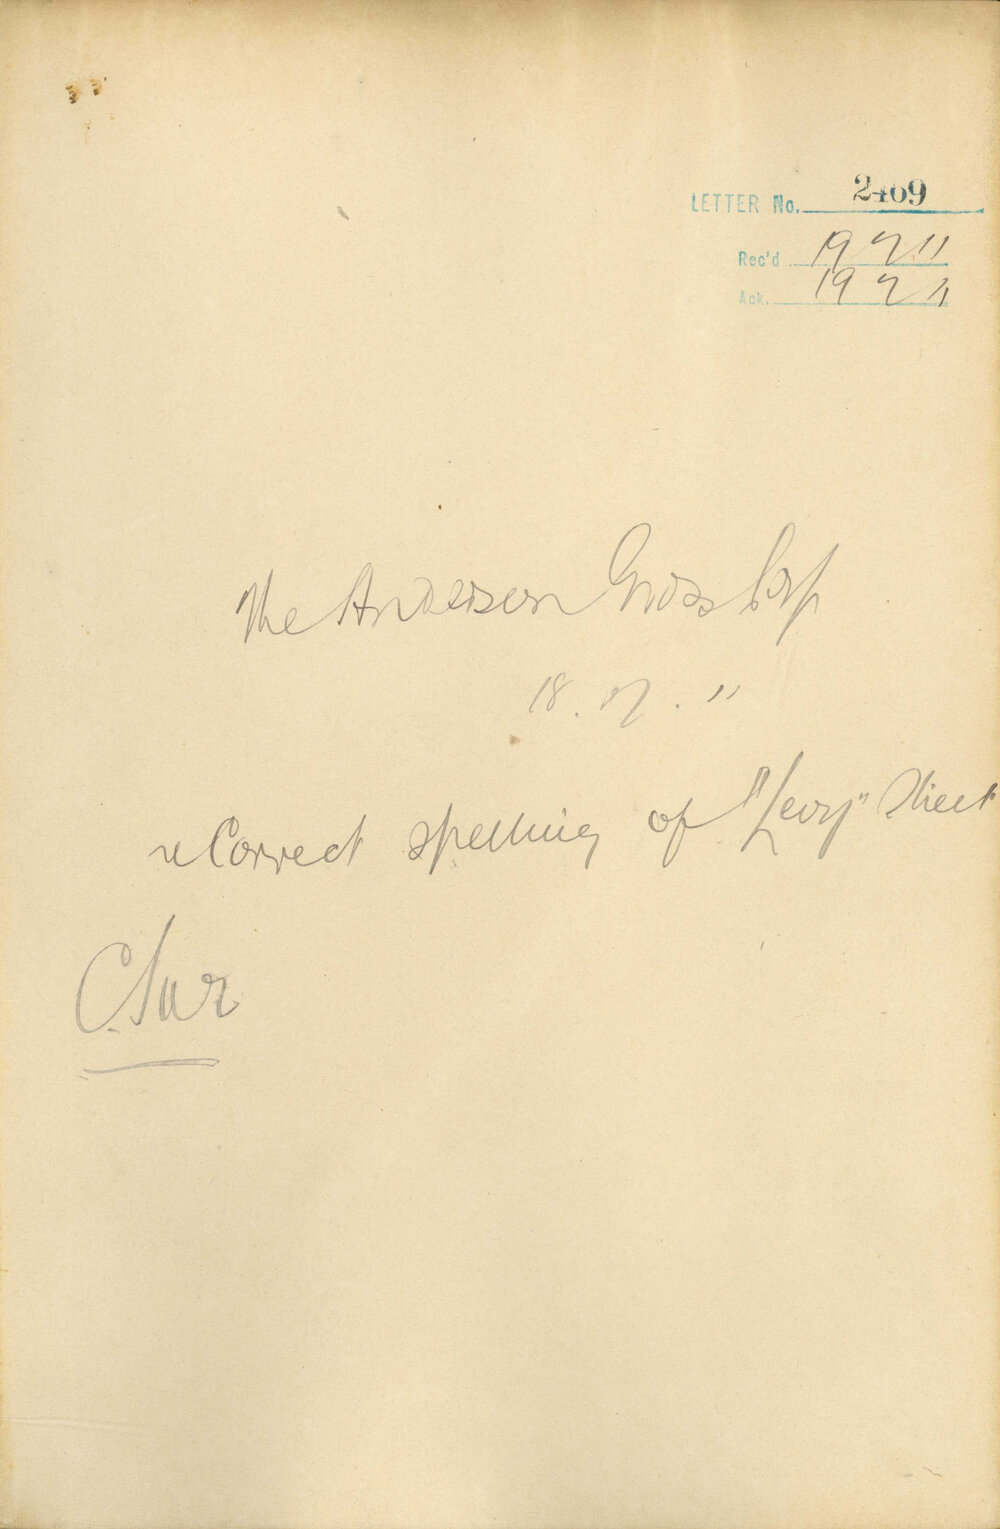 LETTER No. 2469
Rec'd 19 7 11
Ack. 19 7 11
The Anderson Gross Corp
18. 7. 11
re Correct spelling of "Levy" Street
C. Sur